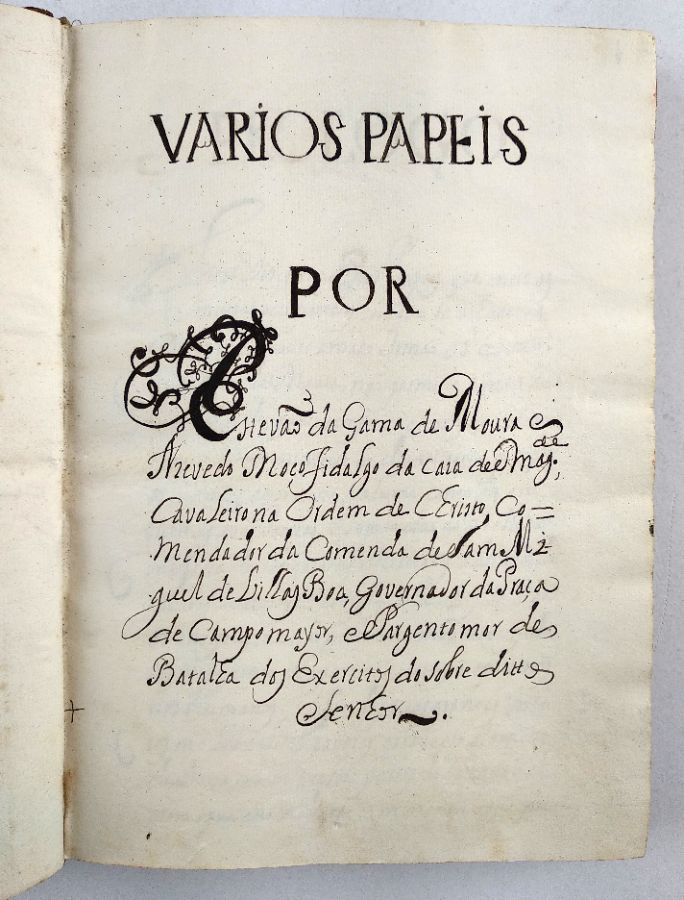 VARIOS PAPEIS
POR
Estevaõ da Gama de Moura e
Azevedo Moço fidalgo da caza de S. Mag.de,
Cavaleiro na Ordem de Christo, Co=
mendador da Comenda de Sam Mi-
guel de Lillaz Boa, Governador da Praça
de Campo mayor, e Sargento mor de
Batalha dos Exercitos do sobre ditto
Senhor.